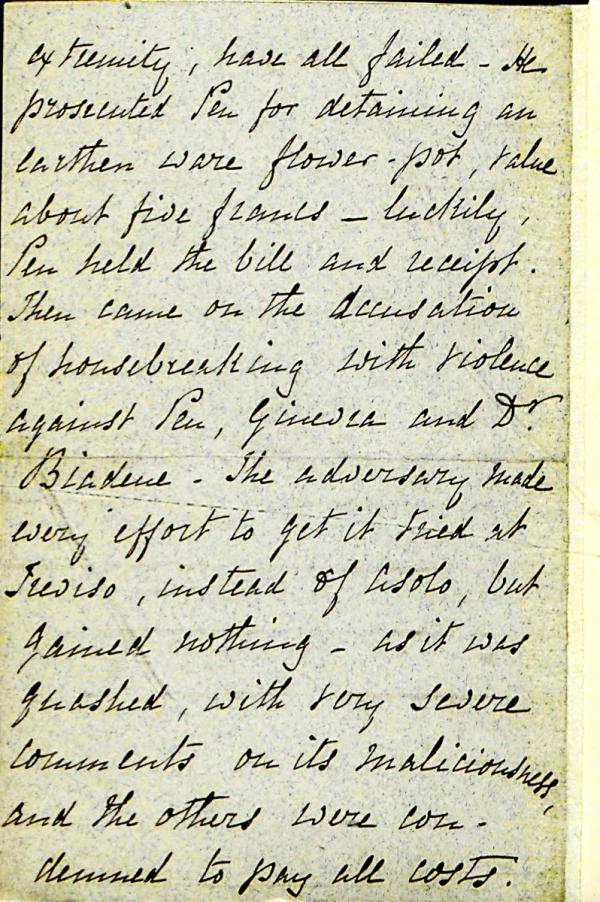 extremity, have all failed - He
prosecuted Pen for detaining an
earthen ware flower-pot, value
about five francs - luckily,
Pen held the bill and receipt.
Then came on the accusation
of housebreaking with violence
against Pen, Ginevra and Dr.
Biadene - The adversary made
every effort to get it tried at
Treviso, instead of Asolo, but
gained nothing - as it was
quashed, with very severe
comments on its maliciousness,
and the others were con-
demned to pay all costs.